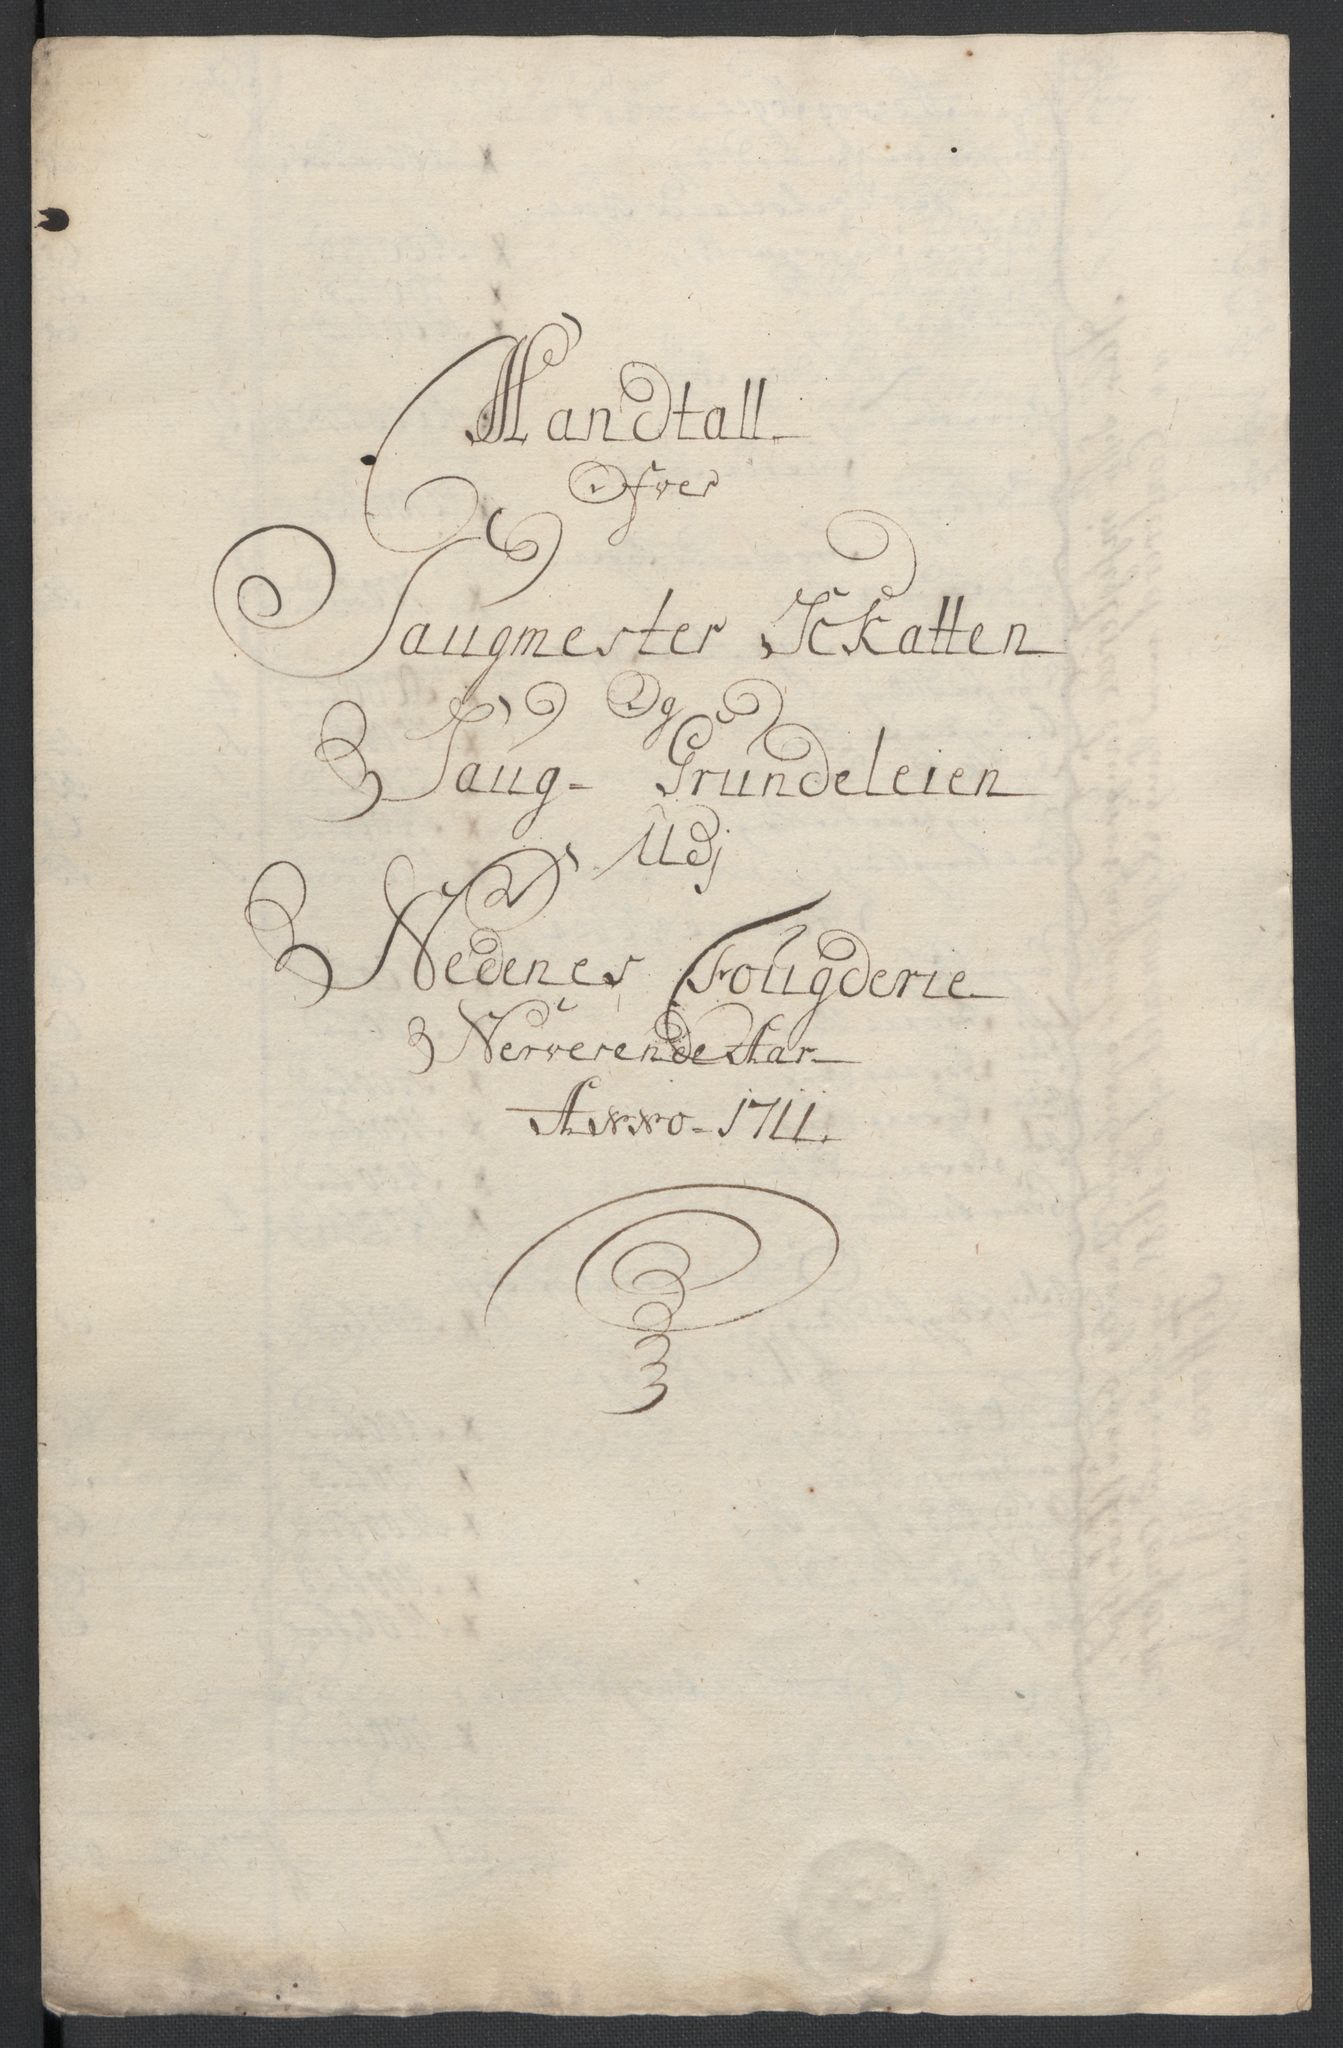 Mandtall
Ofver
Saugmester Schatten
Og
Saug- Grundeleien
Udj
Nedenes Fougderie
Nerverende Aar
Anno 1711.